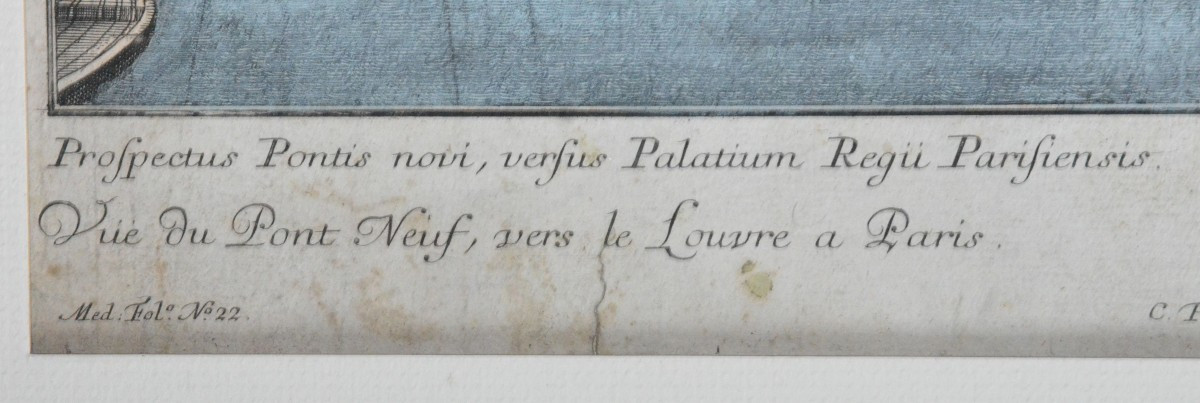 Proſpectus Pontis novi, verſus Palatium Regii Pariſiensis.
Vüe du Pont Neuf, vers le Louvre a Paris.
Med. Folº. Nº 22.
C.